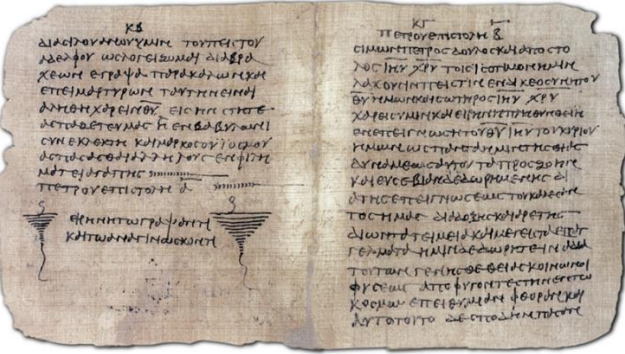 ΚΒ
ΔΙΑ ΣΙΛΟΥΑΝΟΥ ΥΜΙΝ ΤΟΥ ΠΕΙΣΤΟΥ
ΑΔΕΛΦΟΥ ΩΣ ΛΟΓΕΙΖΟΜΑΙ ΔΙΑ ΒΡΑ
ΧΕΩΝ ΕΓΡΑΨΑ ΠΑΡΑΚΑΛΩΝ ΚΑΙ
ΕΠΕΙΜΑΡΤΥΡΩΝ ΤΑΥΤΗΝ ΕΙΝΑΙ
ΑΛΗΘΗ ΧΑΡΕΙΝ ΘΥ ΕΙΣ ΗΝ ΣΤΗΤΕ
ΑΣΠΑΖΕΤΕ ΥΜΑΣ Η ΕΝ ΒΑΒΥΛΩΝΙ
ΣΥΝΕΚΛΕΚΤΗ ΚΑΙ ΜΑΡΚΟΣ Ο ΥΙΟΣ ΜΟΥ
ΑΣΠΑΣΑΣΘΑΙ ΑΛΛΗΛΟΥΣ ΕΝ ΦΙΛΗ
ΜΑΤΕΙ ΑΓΑΠΗΣ
ΠΕΤΡΟΥ ΕΠΙΣΤΟΛΗ Α
ΕΙΡΗΝΗ ΤΩ ΓΡΑΨΑΝΤΙ
ΚΑΙ ΤΩ ΑΝΑΓΙΝΩΣΚΟΝΤΙ
ΚΓ
ΠΕΤΡΟΥ ΕΠΙΣΤΟΛΗ Β
ΣΙΜΩΝ ΠΕΤΡΟΣ ΔΟΥΛΟΣ ΚΑΙ ΑΠΟΣΤΟ
ΛΟΣ ΙΗΥ ΧΡΥ ΤΟΙΣ ΙΣΟΤΙΜΟΝ ΗΜΙΝ
ΛΑΧΟΥΣΙΝ ΠΙΣΤΙΝ ΕΝ ΔΙΚΕΟΣΥΝΗ ΤΟΥ
ΘΥ ΗΜΩΝ ΚΑΙ ΣΩΤΗΡΟΣ ΙΗΥ ΧΡΥ
ΧΑΡΕΙΣ ΥΜΙΝ ΚΑΙ ΕΙΡΗΝΗ ΠΛΗΘΥΝΘΕΙΗ
ΕΝ ΕΠΕΙΓΝΩΣΗ ΤΟΥ ΘΥ ΙΗΥ ΤΟΥ ΚΥΡΙΟΥ
ΗΜΩΝ ΩΣ ΠΑΝΤΑ ΗΜΙΝ ΤΗΣ ΘΕΙΑΣ
ΔΥΝΑΜΕΩΣ ΑΥΤΟΥ ΤΑ ΠΡΟΣ ΖΩΗΝ
ΚΑΙ ΕΥΣΕΒΙΑΝ ΔΕΔΩΡΗΜΕΝΗΣ ΔΙ
Α ΤΗΣ ΕΠΕΙΓΝΩΣΕΩΣ ΤΟΥ ΚΑΛΕΣΑΝ
ΤΟΣ ΗΜΑΣ ΔΙΑ ΔΟΞΗΣ ΚΑΙ ΑΡΕΤΗΣ
ΔΙ ΩΝ ΤΑ ΤΕΙΜΕΙΑ ΚΑΙ ΜΕΓΕΙΣΤΑ ΕΠΑΓ
ΓΕΛΜΑΤΑ ΗΜΙΝ ΔΕΔΩΡΗΤΕ ΙΝΑ ΔΙΑ
ΤΟΥΤΩΝ ΓΕΝΗΣΘΕ ΘΕΙΑΣ ΚΟΙΝΩΝΟΙ
ΦΥΣΕΩΣ ΑΠΟΦΥΓΟΝΤΕΣ ΤΗΝ ΕΝ ΤΩ
ΚΟΣΜΩ ΕΠΕΙΘΥΜΙΑΝ ΦΘΟΡΑΣ ΚΑΙ
ΑΥΤΟ ΤΟΥΤΟ ΔΕ ΣΠΟΥΔΗΝ ΠΑΣΑΝ